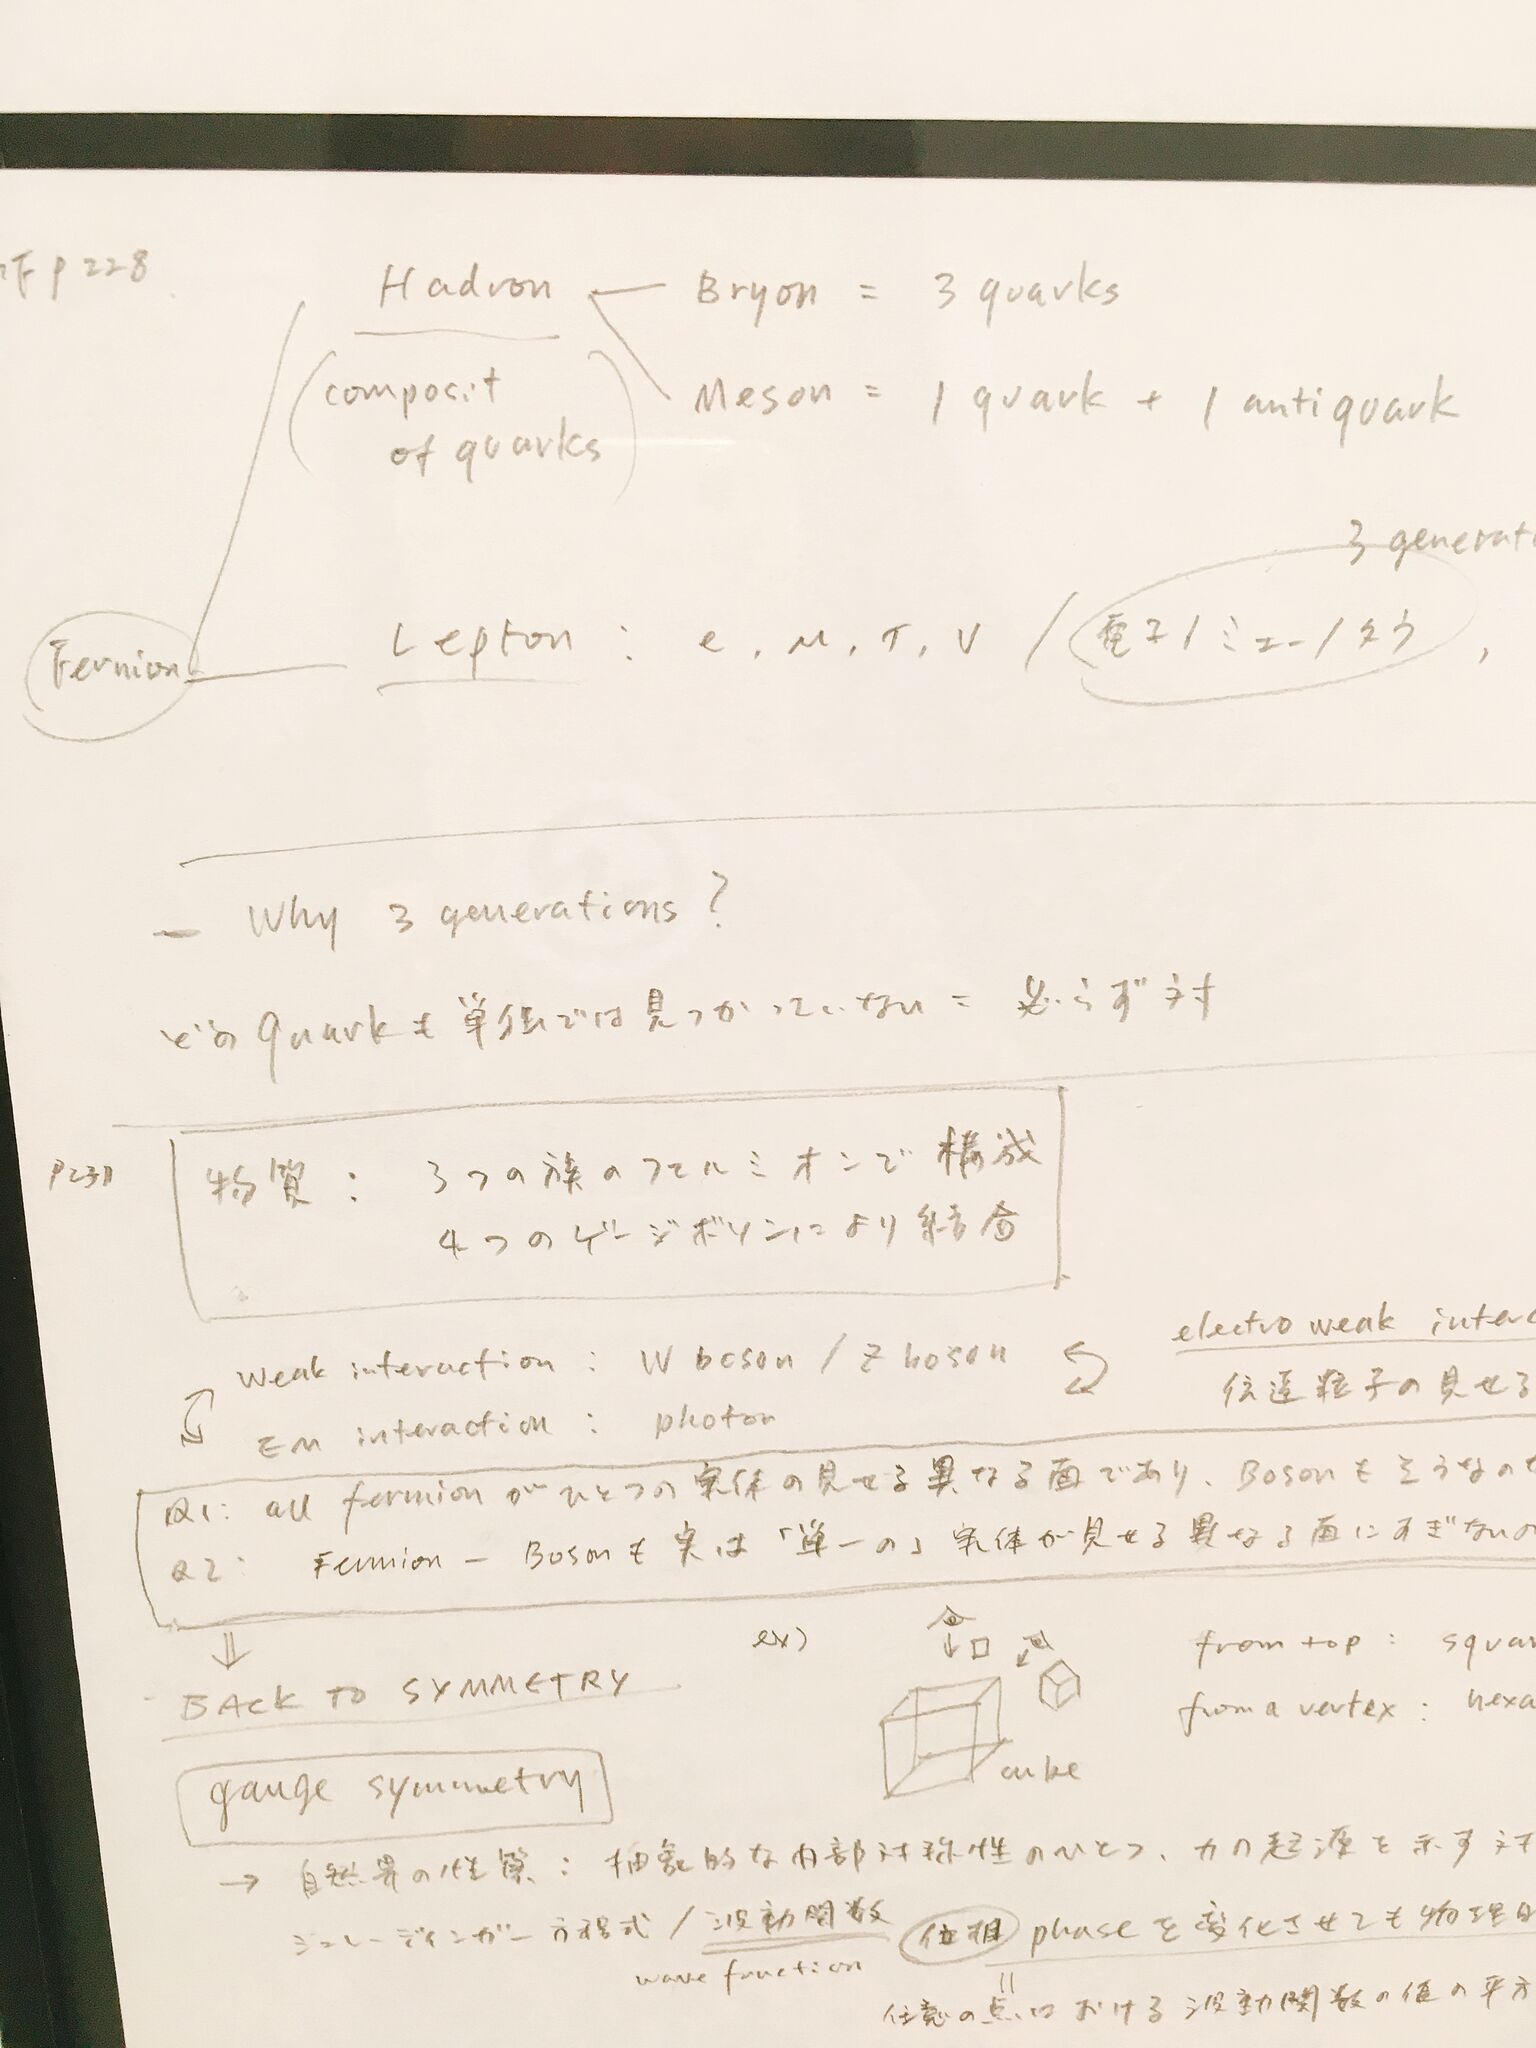 P 228
Hadron
Bryon = 3 quarks
(composit
of quarks)
Meson = 1 quark + 1 antiquark
3 generati
Fermion
Lepton : e, μ, τ, ν / 電子/ミュー/タウ ,
- Why 3 generations?
どの quark も 単独では見つかっていない = 必らず対
P231
物質 : 3つの族のフェルミオンで構成
4つのゲージボソンにより結合
weak interaction : W boson / Z boson
EM interaction : photon
electro weak interac
伝達粒子の見せる
Q1: all fermion がひとつの実体の見せる異なる面であり、Boson もそうなの
Q2: Fermion - Boson も実は「単一の」実体が見せる異なる面にすぎないの
⇓
BACK TO SYMMETRY
ex)
cube
from top : squar
from a vertex : hexa
gauge symmetry
→ 自然界の性質 : 抽象的な内部対称性のひとつ、力の起源を示す対
シュレーディンガー方程式 / 波動関数 位相 phase を変化させても物理的
wave fruction
任意の点における波動関数の値の平方